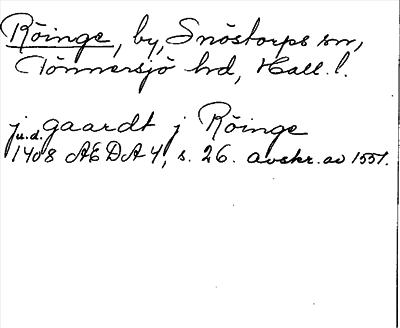 Röinge, by, Snöstorps sn,
Tönnersjö hd, Hall. l.
j gaardt j Röinge
u.d.
1408 AEDA 4, s. 26. avskr. av 1551.